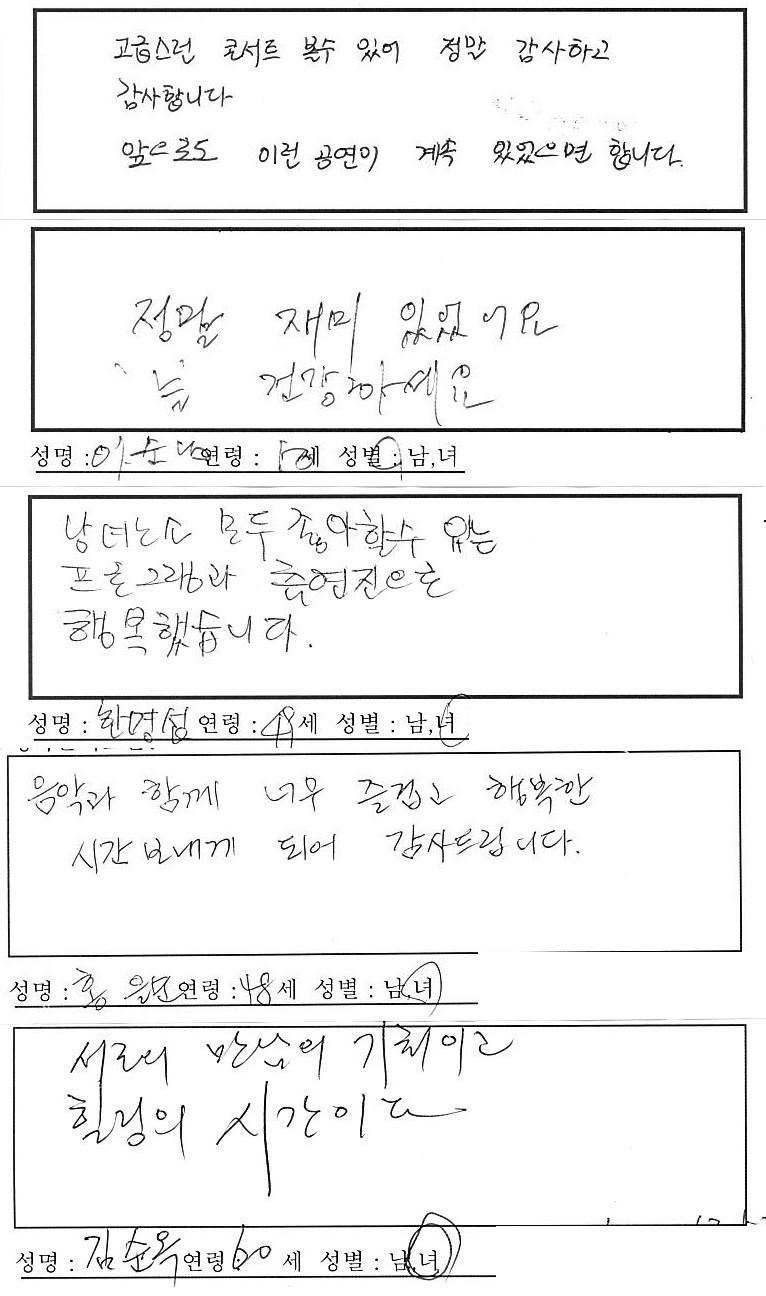 고급스런 콘서트 볼수 있어 정말 감사하고
감사합니다
앞으로도 이런 공연이 계속 있었으면 합니다.
정말 재미 있었어요
늘 건강하세요
성명 : 연령 : 세 성별 : 남,녀
남녀노소 모두 좋아할수 있는
프로그램과 출연진으로
행복했습니다.
성명 : 한명섭 연령 : 48세 성별 : 남,녀
음악과 함께 너무 즐겁고 행복한
시간 보내게 되어 감사드립니다.
성명 : 홍 연령 : 48세 성별 : 남,녀
서로의 만남의 기회이고
힐링의 시간이다
성명 : 김순옥 연령 : 60 세 성별 : 남,녀